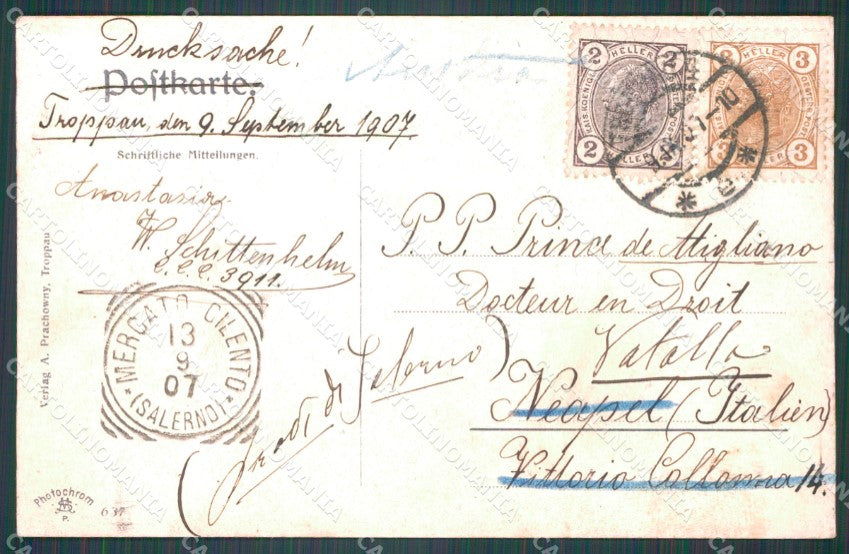 Drucksache!
Postkarte.
Troppau, den 9. September 1907.
Schriftliche Mitteilungen.
Anastasia
W. Schittenhelm
C.C.C. 3911.
Verlag A. Prachowny, Troppau
2 HELLER 2
2 HELLER 2
3 HELLER 3
3 HELLER 3
P. P. Prince de Migliano
Docteur en Droit
Vatolla
Neapel (Italien)
Vittorio Collonna 14.
(prov di Salerno)
MERCATO CILENTO
13
9
07
(SALERNO)
Photochrom
P.
637
Austria
CARTOLINOMANIA